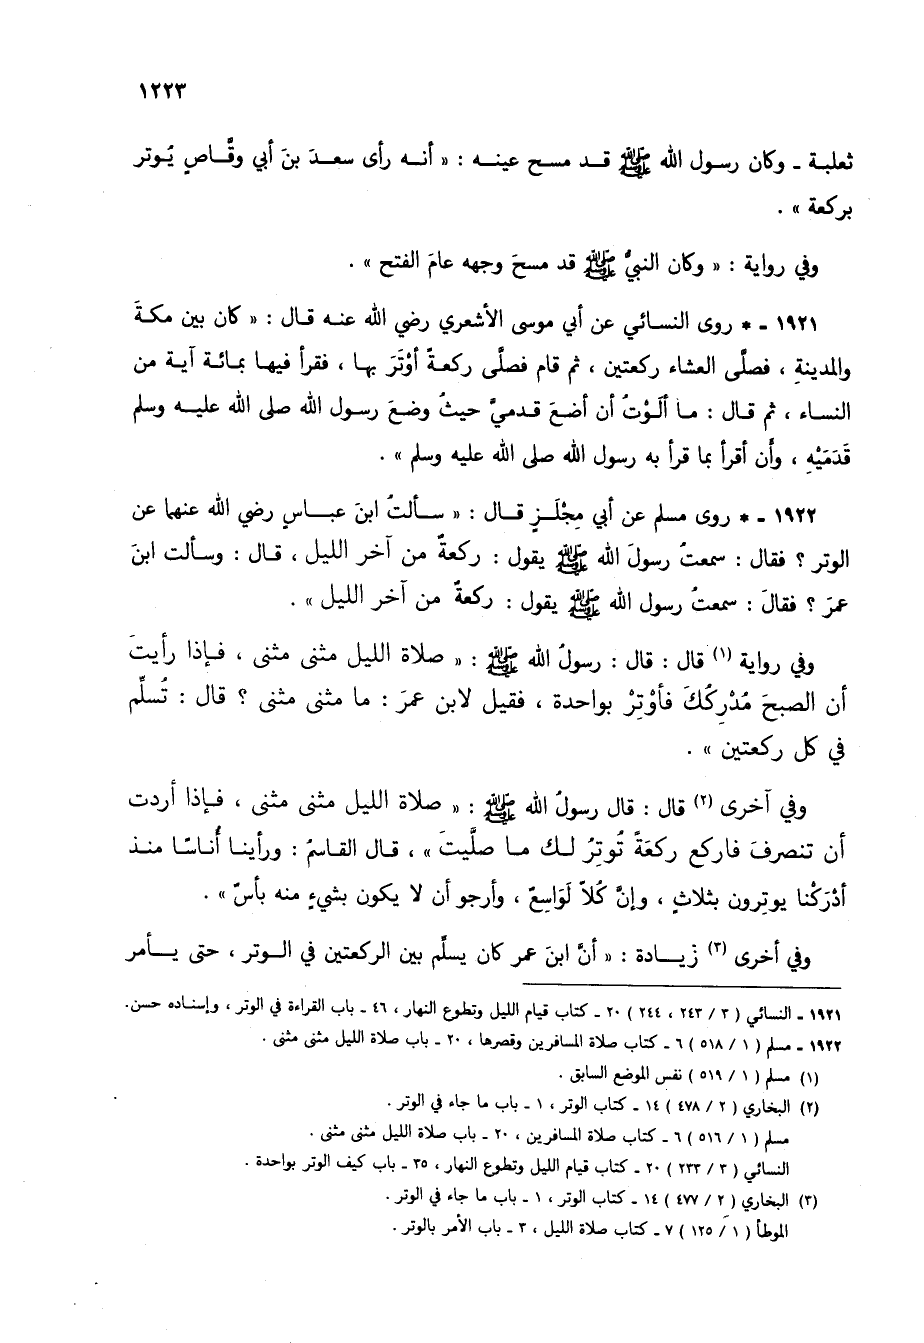 ١٢٢٣
ثعلبة ـ وكان رسول الله ﷺ قـد مسح عينـه : « أنـه رأى سعدَ بنَ أبي وقَّـاصٍ يُـوتر
بركعة » .
وفي رواية : « وكان النبيُّ ﷺ قد مسحَ وجهه عامَ الفتح » .
١٩٢١ ـ * روى النسـائي عن أبي موسى الأشعري رضي الله عنـه قـال : « كان بين مكـةَ
والمدينةِ ، فصلَّى العشاء ركعتين ، ثم قام فصلَّى ركعةً أوْتَرَ بها ، فقرأ فيهـا بمـائـة آيـة من
النسـاء ، ثم قـال : مـا ألَـوْتُ أن أضـعَ قـدميَّ حيثُ وضـعَ رسـول الله صلى الله عليـه وسلم
قَدَمَيْهِ ، وأن أقرأ بما قرأ به رسول الله صلى الله عليه وسلم » .
١٩٢٢ ـ * روى مسلم عن أبي مِجْلَـزٍ قـال : « سـألتُ ابنَ عبـاسٍ رضي الله عنهما عن
الوتر ؟ فقال : سمعتُ رسولَ الله ﷺ يقول : ركعةٌ من آخر الليل ، قـال : وسـألت ابنَ
عمرَ ؟ فقالَ : سمعتُ رسول الله ﷺ يقول : ركعةٌ من آخر الليل » .
وفي رواية (١) قال : قال : رسولُ الله ﷺ : « صلاة الليل مثنى مثنى ، فـإذا رأيتَ
أن الصبحَ مُدْرِكُكَ فأوْتِرْ بواحدة ، فقيل لابن عمرَ : ما مثنى مثنى ؟ قال : تُسلِّم
في كل ركعتين » .
وفي آخرى (٢) قال : قال رسولُ الله ﷺ : « صلاة الليل مثنى مثنى ، فـإذا أردت
أن تنصرفَ فاركع ركعَةً تُوتِرُ لـك مـا صلَّيتَ » ، قـال القـاسمُ : ورأينـا أُنـاسًـا منـذ
أدْرَكْنا يوتِرون بثلاثٍ ، وإنَّ كُلاً لَوَاسِعٌ ، وأرجو أن لا يكون بشيءٍ منه بأسٌ » .
وفي أخرى (٣) زيـادة : « أنَّ ابنَ عمر كان يسلِّم بين الركعتين في الـوتر ، حتى يـأمر
١٩٢١ ـ النسائي ( ٣ / ٢٤٣ ، ٢٤٤ ) ٢٠ ـ كتاب قيام الليل وتطوع النهار ، ٤٦ ـ باب القراءة في الوتر ، وإسناده حسن.
١٩٢٢ ـ مسلم ( ١ / ٥١٨ ) ٦ ـ كتاب صلاة المسافرين وقصرها ، ٢٠ ـ باب صلاة الليل مثنى مثنى .
(١) مسلم ( ١ / ٥١٩ ) نفس الموضع السابق .
(٢) البخاري ( ٢ / ٤٧٨ ) ١٤ ـ كتاب الوتر ، ١ ـ باب ما جاء في الوتر .
مسلم ( ١ / ٥١٦ ) ٦ ـ كتاب صلاة المسافرين ، ٢٠ ـ باب صلاة الليل مثنى مثنى .
النسائي ( ٣ / ٢٣٣ ) ٢٠ ـ كتاب قيام الليل وتطوع النهار ، ٣٥ ـ باب كيف الوتر بواحدة .
(٣) البخاري ( ٢ / ٤٧٧ ) ١٤ ـ كتاب الوتر ، ١ ـ باب ما جاء في الوتر .
الموطأ ( ١ / ١٢٥ ) ٧ ـ كتاب صلاة الليل ، ٣ ـ باب الأمر بالوتر .